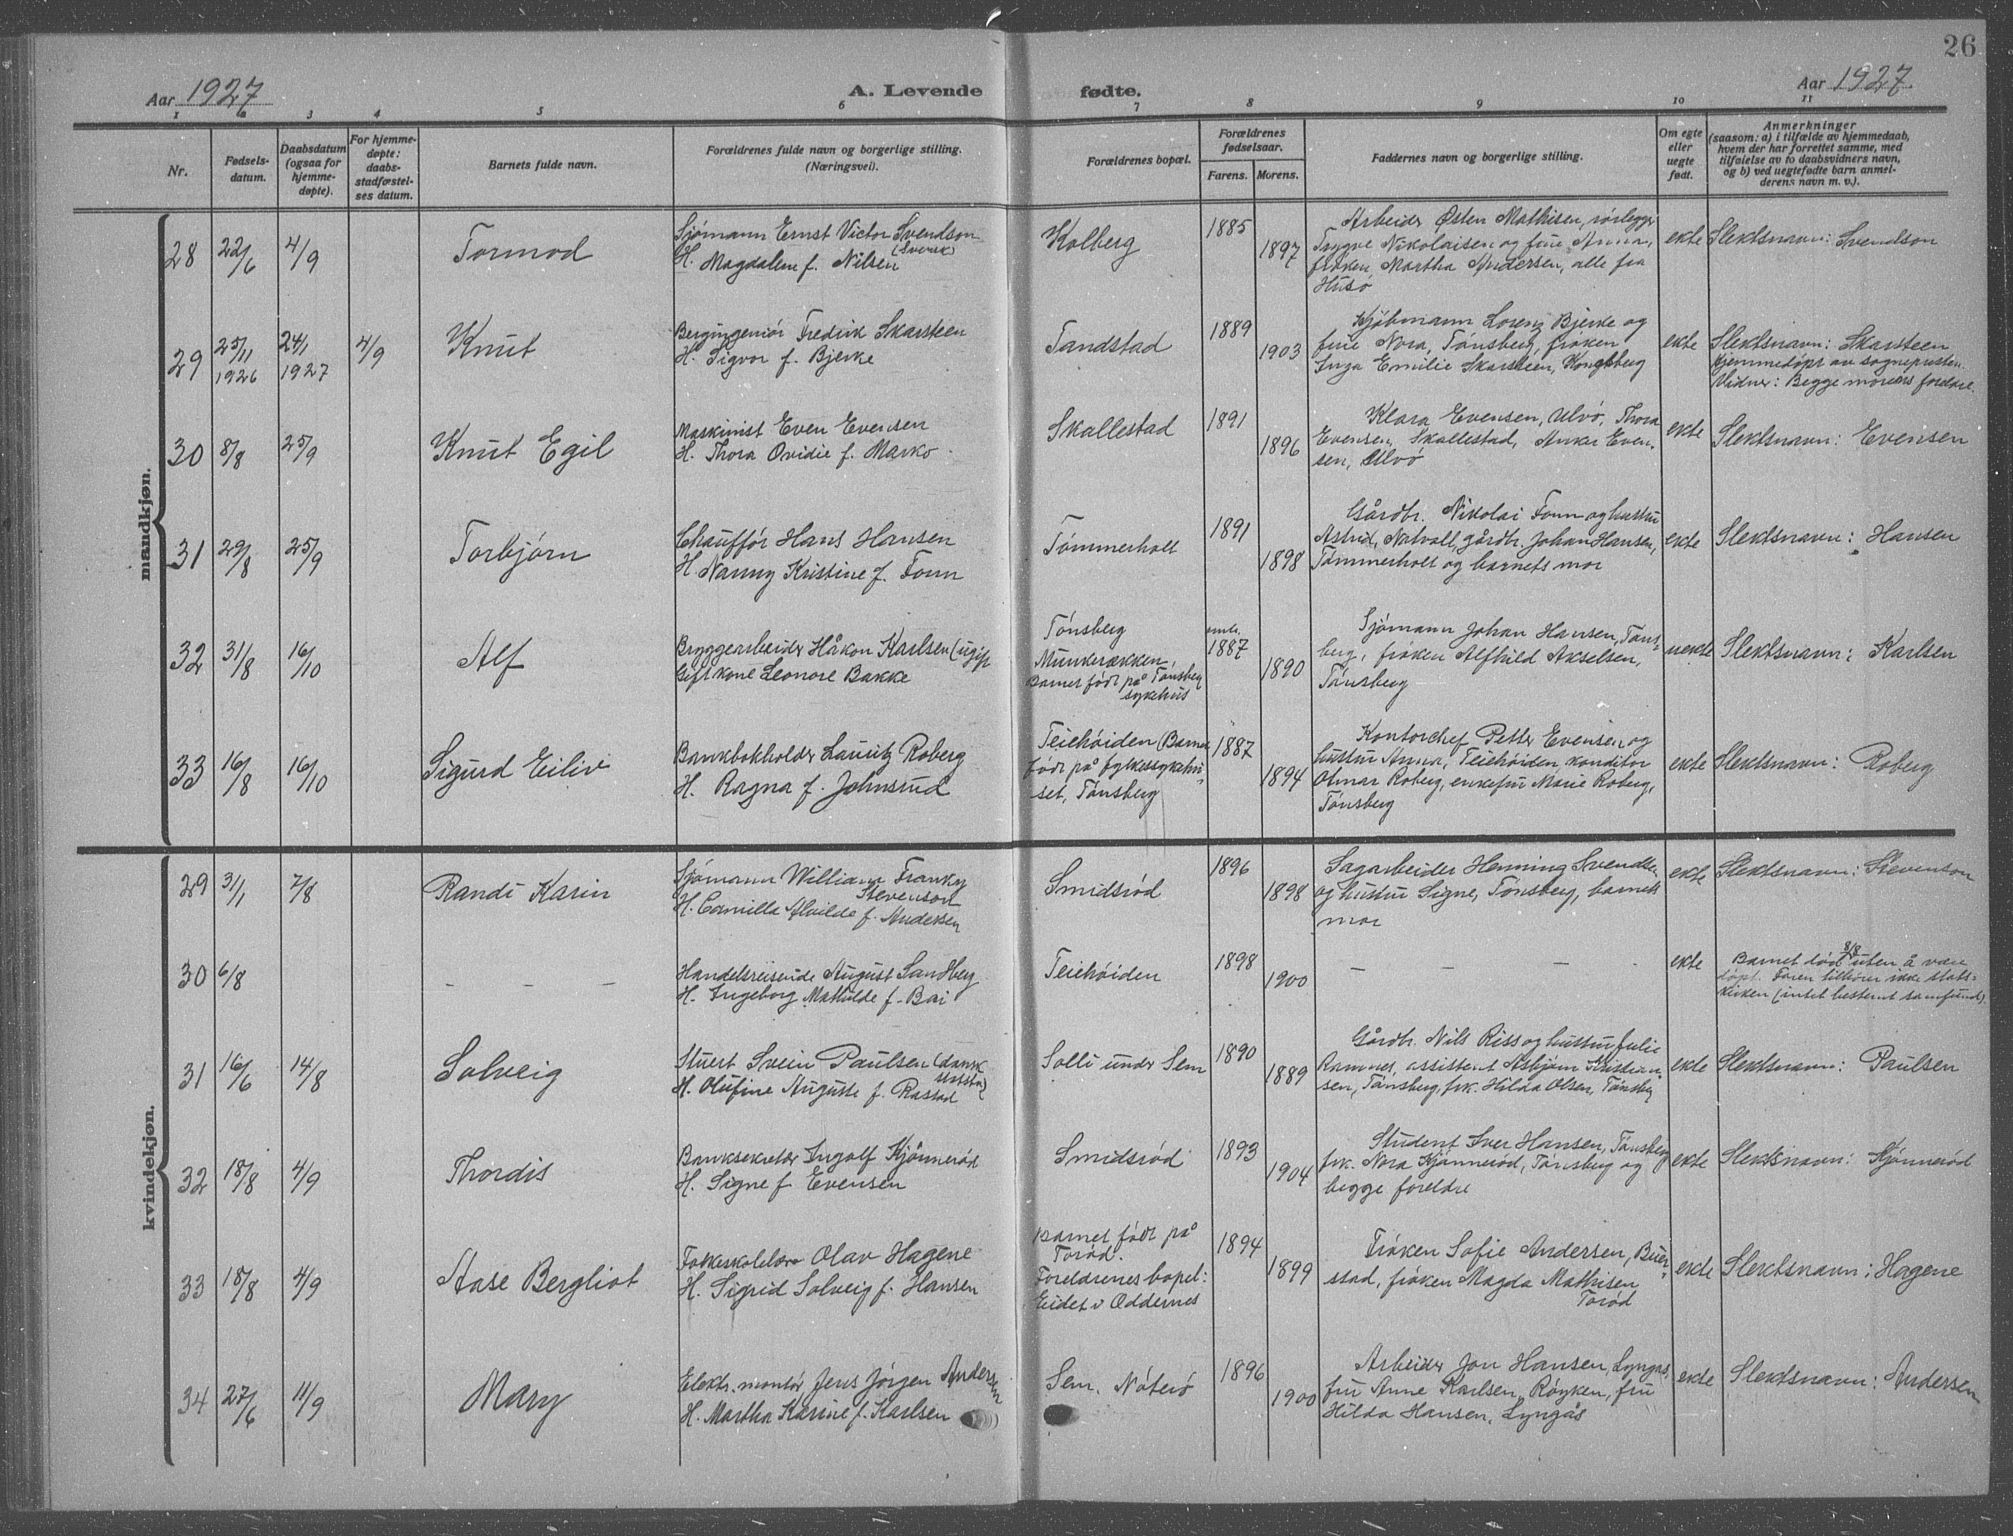 26
Aar 1927
A. Levende
fødte.
Aar 1927
1 2 3 4 5 6 7 8 9 10 11
Nr.
Fødsels-
datum.
Daabsdatum
(ogsaa for
hjemme-
døpte).
For hjemme-
døpte:
daabs-
stadfæstel-
ses datum.
Barnets fulde navn.
Forældrenes fulde navn og borgerlige stilling.
(Næringsvei).
Forældrenes bopæl.
Forældrenes
fødselsaar.
Farens. Morens.
Faddernes navn og borgerlige stilling.
Om egte
eller
uegte
født.
Anmerkninger
(saasom: a) i tilfælde av hjemmedaab,
hvem der har forrettet samme, med
tilføielse av to daabsvidners navn,
og b) ved uegtefødte barn anmel-
derens navn m. v.).
mandkjøn.
28 22/6 4/9
Tormod
Sjømann Ernst Victor Svendson
(Svensk)
H. Magdalene f. Nilsen
Kolberg
1885
1897
Arbeider Østen Mathisen, rørlegger
Trygve Nikolaisen og frue Anna,
frøken Martha Andersen, alle fra
Husø
ekte
Slektsnavn: Svendson
29 25/11 1926
24/1 1927
4/9
Knut
Bergingeniør Fredrik Skarsteen
H. Sigvor f. Bjerke
Tandstad
1889
1903
Kjøbmann Lorenz Bjerke og
frue Nora, Tønsberg, frøken
Inga Emilie Skarsteen, Kongsberg
ekte
Slektsnavn: Skarsteen
Hjemmedøpt av sognepresten.
Vidner: Begge morens foreldre.
30 8/8 25/9
Knut Egil
Maskinist Even Evensen
H. Thora Ovidie f. Marko
Skallestad
1891
1896
Klara Evensen, Ulvø, Thora
Evensen, Skallestad, Anker Even-
sen, Ulvø
ekte
Slektsnavn: Evensen
31 29/8 25/9
Torbjørn
Chauffør Hans Hansen
H. Nanny Kristine f. Fonn
Tømmerholt
1891
1898
Gårdbr. Nikolai Fonn og hustru
Astrid, Natvall, gårdbr. Johan Hansen,
Tømmerholt og barnets mor
ekte
Slektsnavn: Hansen
32 31/8 16/10
Alf
Bryggearbeider Håkon Karlsen (ugift
Gift kone Leonore Bakke
Tønsberg
Munkerækken,
Barnet født på Tønsberg
sykehus
omtr.
1887
1890
Sjømann Johan Hansen, Tøns-
berg, frøken Alfhild Akselsen,
Tønsberg
uekte
Slektsnavn: Karlsen
33 16/8 16/10
Sigurd Eiliv
Bankbokholder Lauritz Roberg
H. Ragna f. Johnsrud
Teiehøiden (Barnet
født på fylkessykehu-
set, Tønsberg
1887
1894
Kontorchef Petter Evensen og
hustru Anna, Teiehøiden konditor
Otmar Roberg, enkefru Marie Roberg,
Tønsberg
ekte
Slektsnavn: Roberg
kvindekjøn.
29 31/1 7/8
Randi Karin
Sjømann William Franky
Stevenson
H. Camilla Alvilde f. Andersen
Smidsrød
1896
1898
Sagarbeider Henning Svendsen
og hustru Signe, Tønsberg, barnets
mor
ekte
Slektsnavn: Stevenson
30 6/8
– – –
Handelsreisende August Sandberg
H. Ingeborg Mathilde f. Bai
Teiehøiden
1898
1900
– – – –
ekte
Barnet død 8/8 uten å være
døpt. Faren tilhører ikke stats-
kirken (intet bestemt samfund).
31 16/6 14/8
Solveig
Stuert Svein Paulsen (dansk
statsb.)
H. Olufine Auguste f. Rastad
Solli under Sem
1890
1889
Gårdbr. Nils Riis og hustru Julie
Ramnes, assistent Asbjørn Kristian-
sen, Tønsberg, frk. Hilda Olsen, Tønsberg
ekte
Slektsnavn: Paulsen
32 18/8 4/9
Thordis
Banksekretær Ingolf Kjønnerød
H. Signe f. Evensen
Smidsrød
1893
1904
Student Iver Hansen, Tønsberg,
frk. Nora Kjønnerød, Tønsberg og
begge foreldre
ekte
Slektsnavn: Kjønnerød
33 18/8 4/9
Aase Bergliot
Folkeskolelærer Olav Hagene
H. Sigrid Solveig f. Hansen
Barnet født på
Torød.
Foreldrenes bopel:
Eidet i Oddernes
1894
1899
Frøken Sofie Andersen, Buer-
stad, frøken Magda Mathisen
Torød
ekte
Slektsnavn: Hagene
34 27/6 11/9
Mary
Elektr. montør Jens Jørgen Andersen
H. Martha Karine f. Karlsen
Sem. Nøterø
1896
1900
Arbeider Jon Hansen, Lyngås,
fru Anne Karlsen, Røyken, fru
Hilda Hansen, Lyngås
ekte
Slektsnavn: Andersen